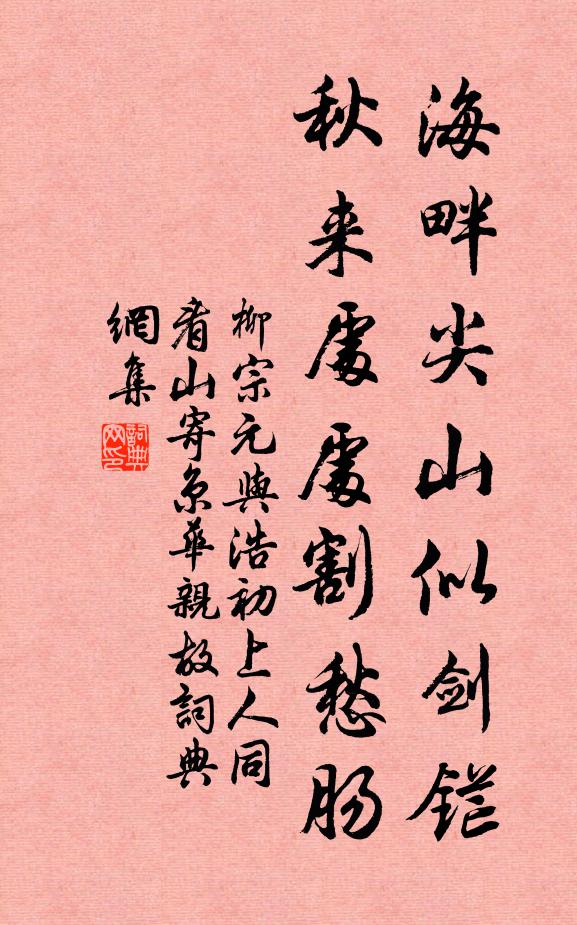 海畔尖山似劍鋩
秋来處處割愁肠
柳宗元與浩初上人同
看山寄京華親故詞典
網集
詞典
网印